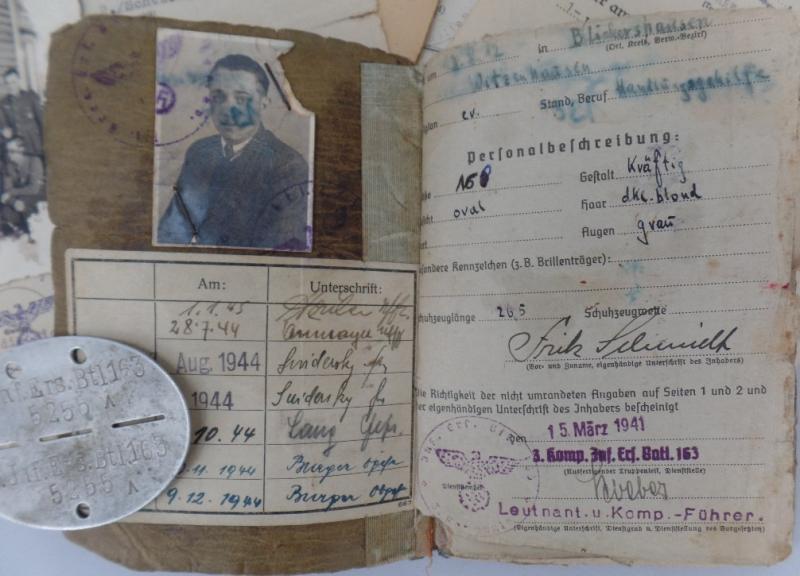 Am: Unterschrift:
1.1.45
28.7.44
Aug. 1944 Suidersky
1944 Suidersky
10.44 Lang Gefr.
11. 1944 Burger Ogefr
9.12. 1944 Burger Ogefr
Inf.Ers.Btl.163
5255 A
Inf.Ers.Btl.163
5255 A
in Blickershausen
(Ort, Kreis, Verw.-Bezirk)
Witzenhausen
ev. Stand, Beruf Handlungsgehilfe
Personalbeschreibung:
Gestalt Kräftig
oval Haar dkl. blond
Augen grau
sondere Kennzeichen (z. B. Brillenträger):
chuhzeuglänge 26,5 Schuhzeugweite
Fritz Schmidt
(Vor- und Zuname, eigenhändige Unterschrift des Inhabers)
ie Richtigkeit der nicht umrandeten Angaben auf Seiten 1 und 2 und
er eigenhändigen Unterschrift des Inhabers bescheinigt
den 15. März 1941
3. Komp. Inf. Ers. Batl. 163
(Ausfertigender Truppenteil, Dienststelle)
Weber
Leutnant u. Komp.-Führer.
(Eigenhändige Unterschrift, Dienstgrad u. Dienststellung des Vorgesetzten)